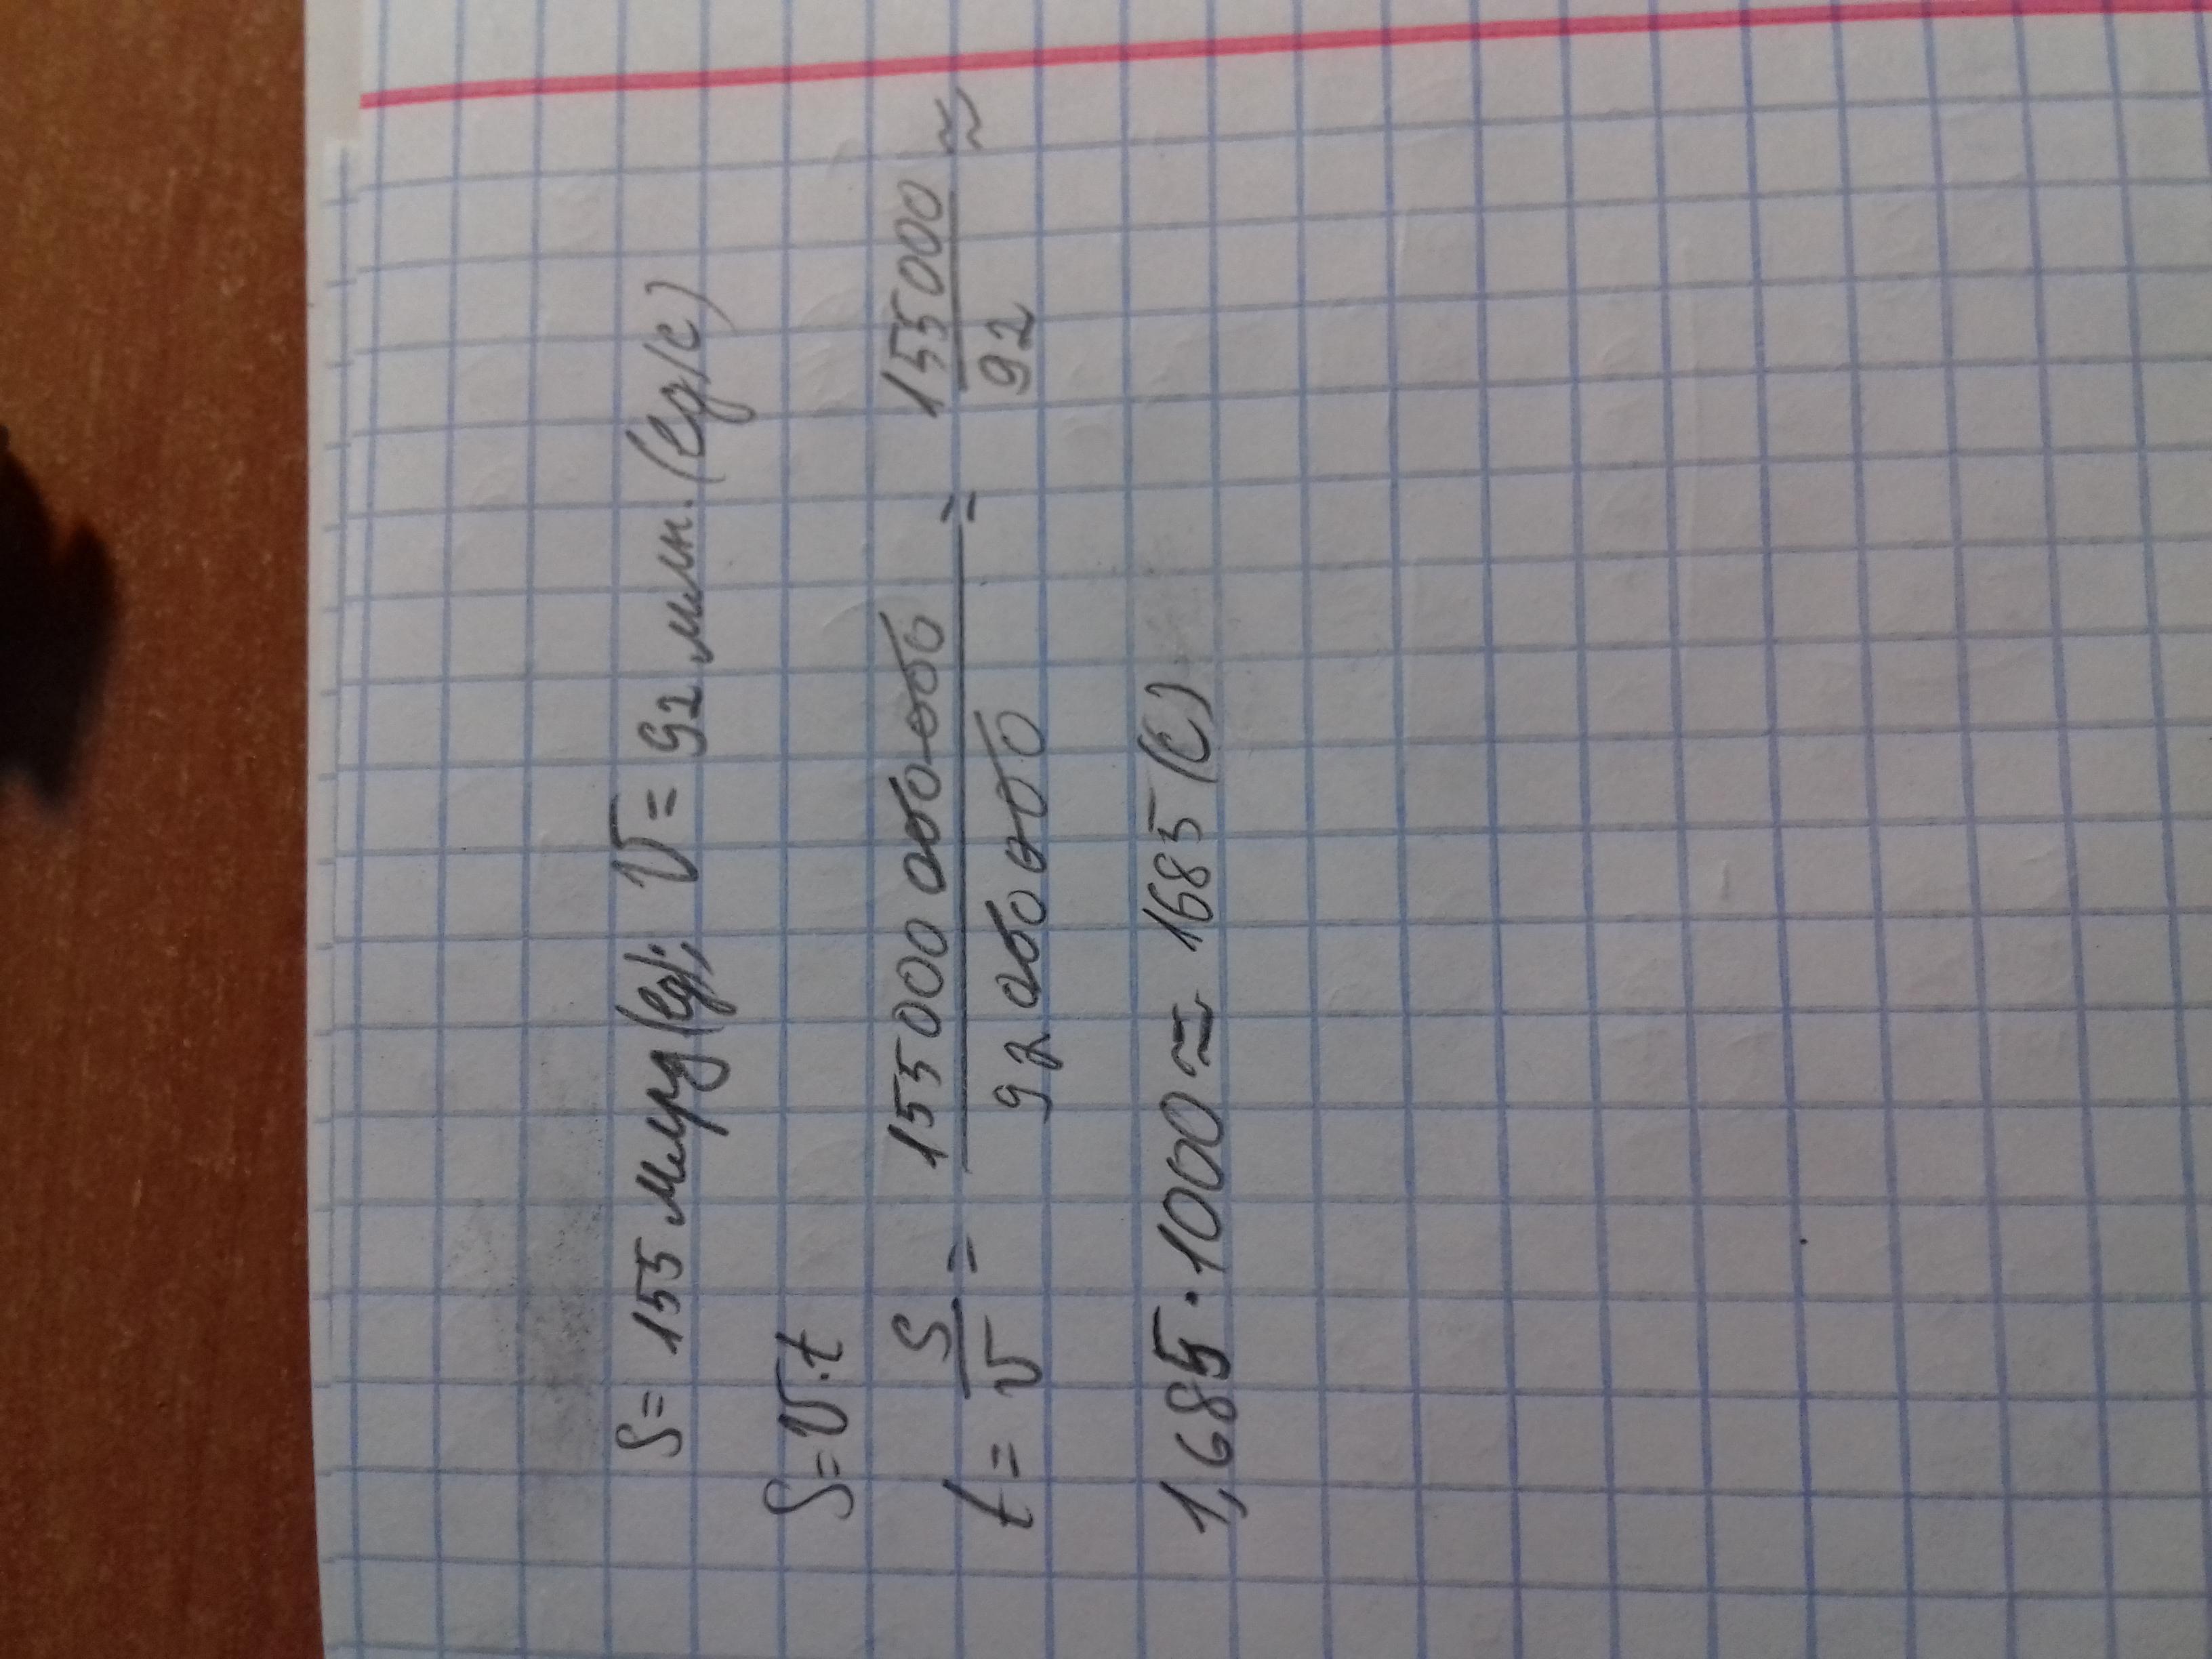 S = 155 млрд (ед); V = 92 млн. (ед/с)
S = V · t
t = S/V = 155 000 000 000 / 92 000 000 = 155 000 / 92 ≈
1,685 · 1000 ≈ 1685 (с)